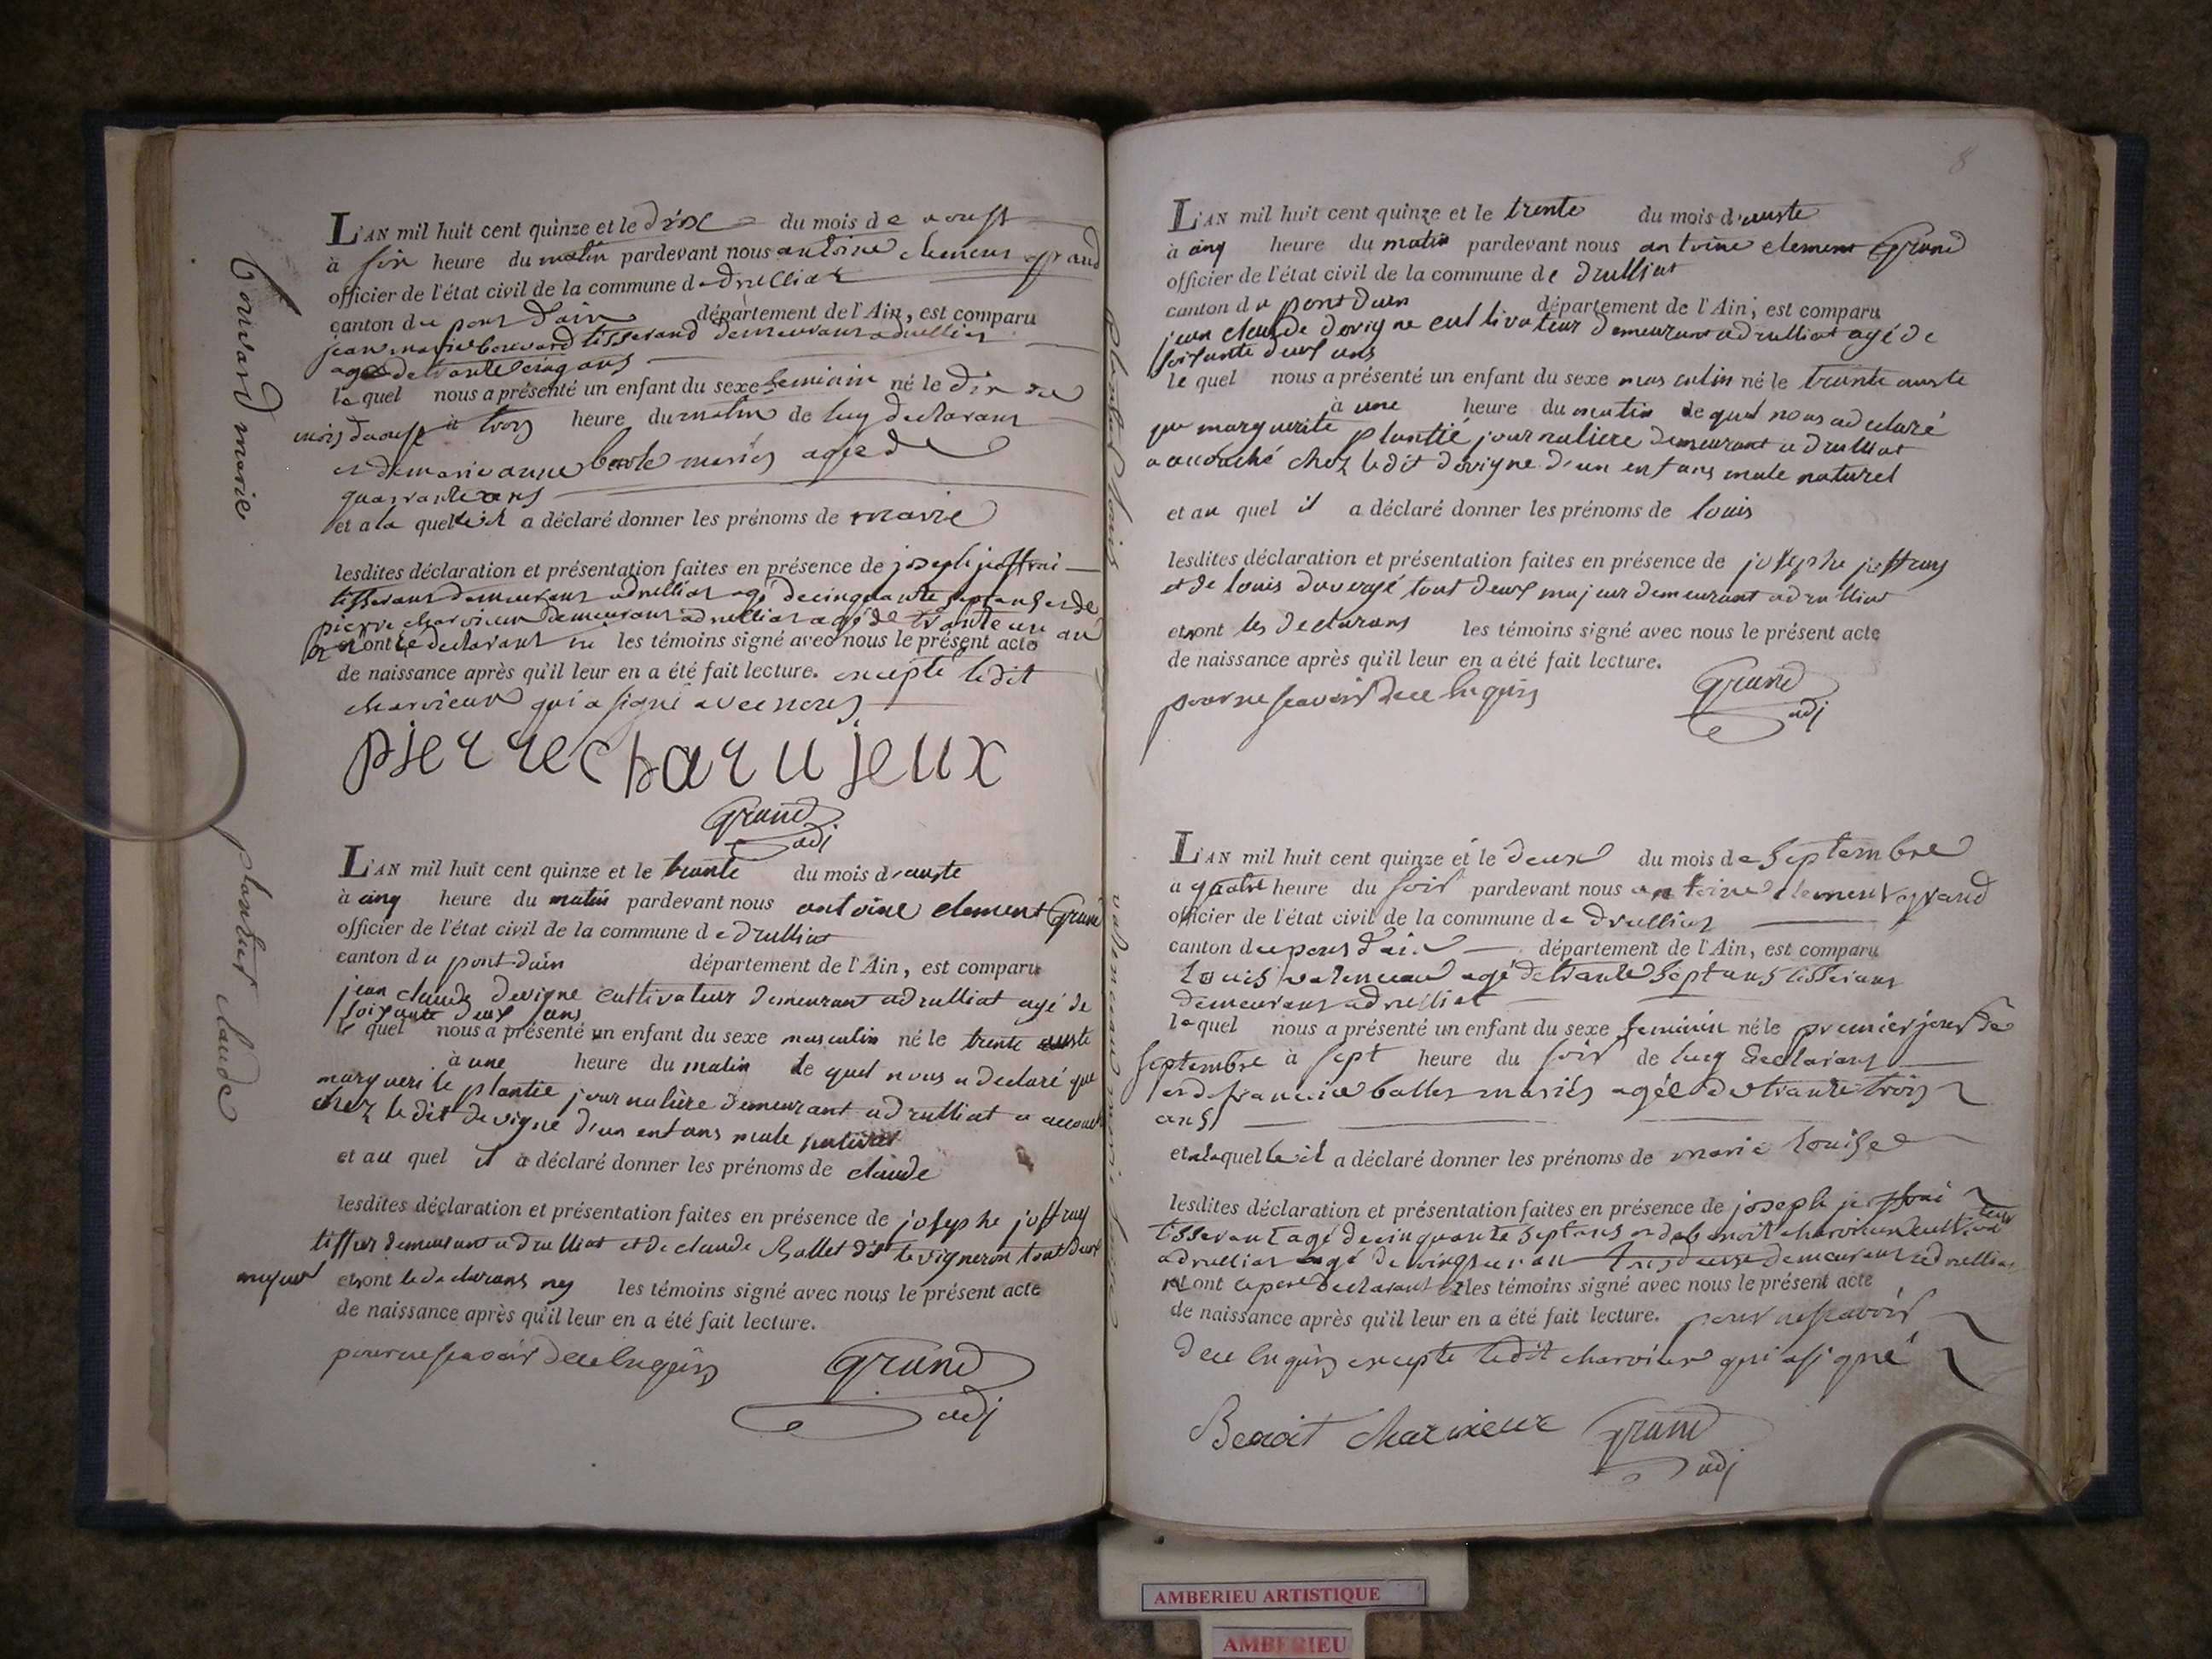 Bouvard marie
L'AN mil huit cent quinze et le dix du mois de aoust
à six heure du matin pardevant nous antoine clement grand
officier de l'état civil de la commune de druilliat
canton du pont dain département de l'Ain, est comparu
jean marie bouvard tisserand demeurant a druilliat
agé de trante cinq ans
le quel nous a présenté un enfant du sexe feminin né le dix du
mois daoust à trois heure du matin de luy declarant
et de marie anne mariés agée de
quarrante ans
et a la quelle il a déclaré donner les prénoms de marie
lesdites déclaration et présentation faites en présence de joseph joffrai
tisserant demeurant a drulliat agé de cinquante sept ans et de
pierre charvieux demeurant a drulliat agé de trante un an
et ont le declarant ni les témoins signé avec nous le présent acte
de naissance après qu'il leur en a été fait lecture. excepté ledit
charvieux qui a signé avec nous
pierre charujeux
Grand
adj
plantier claude
L'AN mil huit cent quinze et le trante du mois d'auste
à cinq heure du matin pardevant nous antoine clement Grand
officier de l'état civil de la commune de drulliat
canton du pont dain département de l'Ain, est comparu
jean claude devigne cultivateur demeurant a drulliat agé de
soixante deux ans
le quel nous a présenté un enfant du sexe masculin né le trente auste
à une heure du matin le quel nous a declaré que
marguerite plantie journalière demeurant a drulliat a accouché
chez le dit devigne d'un enfans male naturel
et au quel il a déclaré donner les prénoms de claude
lesdites déclaration et présentation faites en présence de josephe joffray
tissier demeurant a drulliat et de claude Ballet dit le vigneron tout deux
majeur et ont le declarans ny les témoins signé avec nous le présent acte
de naissance après qu'il leur en a été fait lecture.
pour ne scavoir de ce enquis
Grand
adj
8
plantier louis
L'AN mil huit cent quinze et le trente du mois d'auste
à cinq heure du matin pardevant nous antoine clement Grand
officier de l'état civil de la commune de drulliat
canton du pont dain département de l'Ain, est comparu
jean claude devigne cultivateur demeurant a drulliat agé de
soixante deux ans
le quel nous a présenté un enfant du sexe masculin né le trante auste
à une heure du matin le quel nous a declaré
que marguerite plantié journaliere demeurant a drulliat
a accouché chez ledit devigne d'un enfans male naturel
et au quel il a déclaré donner les prénoms de louis
lesdites déclaration et présentation faites en présence de josephe joffray
et de louis duvergé tout deux majeur demeurant a drulliat
et ont les declarans les témoins signé avec nous le présent acte
de naissance après qu'il leur en a été fait lecture.
pour ne scavoir de ce enquis
Grand
adj
L'AN mil huit cent quinze et le deux du mois de septembre
a quatre heure du soir pardevant nous antoine clement grand
officier de l'état civil de la commune de drulliat
canton du pont d'ain département de l'Ain, est comparu
Louis valenceau agé de trante sept ans tisserant
demeurant a drulliat
le quel nous a présenté un enfant du sexe feminin né le premier jour de
septembre à sept heure du soir de lucy declarant
et de francoise ballet mariés agée de trante trois
ans
et a laquelle il a déclaré donner les prénoms de marie louise
lesdites déclaration et présentation faites en présence de joseph joffrai
tisserant agé de cinquante sept ans et de benoit charvieux cultivateur
a drulliat agé de vingt un an tous deux demeurant a drulliat
et ont le pere declarant et les témoins signé avec nous le présent acte
de naissance après qu'il leur en a été fait lecture. pour ne scavoir
de ce enquis excepté ledit charvieux qui a signé
Benoit charvieux
Grand
adj
AMBERIEU ARTISTIQUE
AMBERIEU